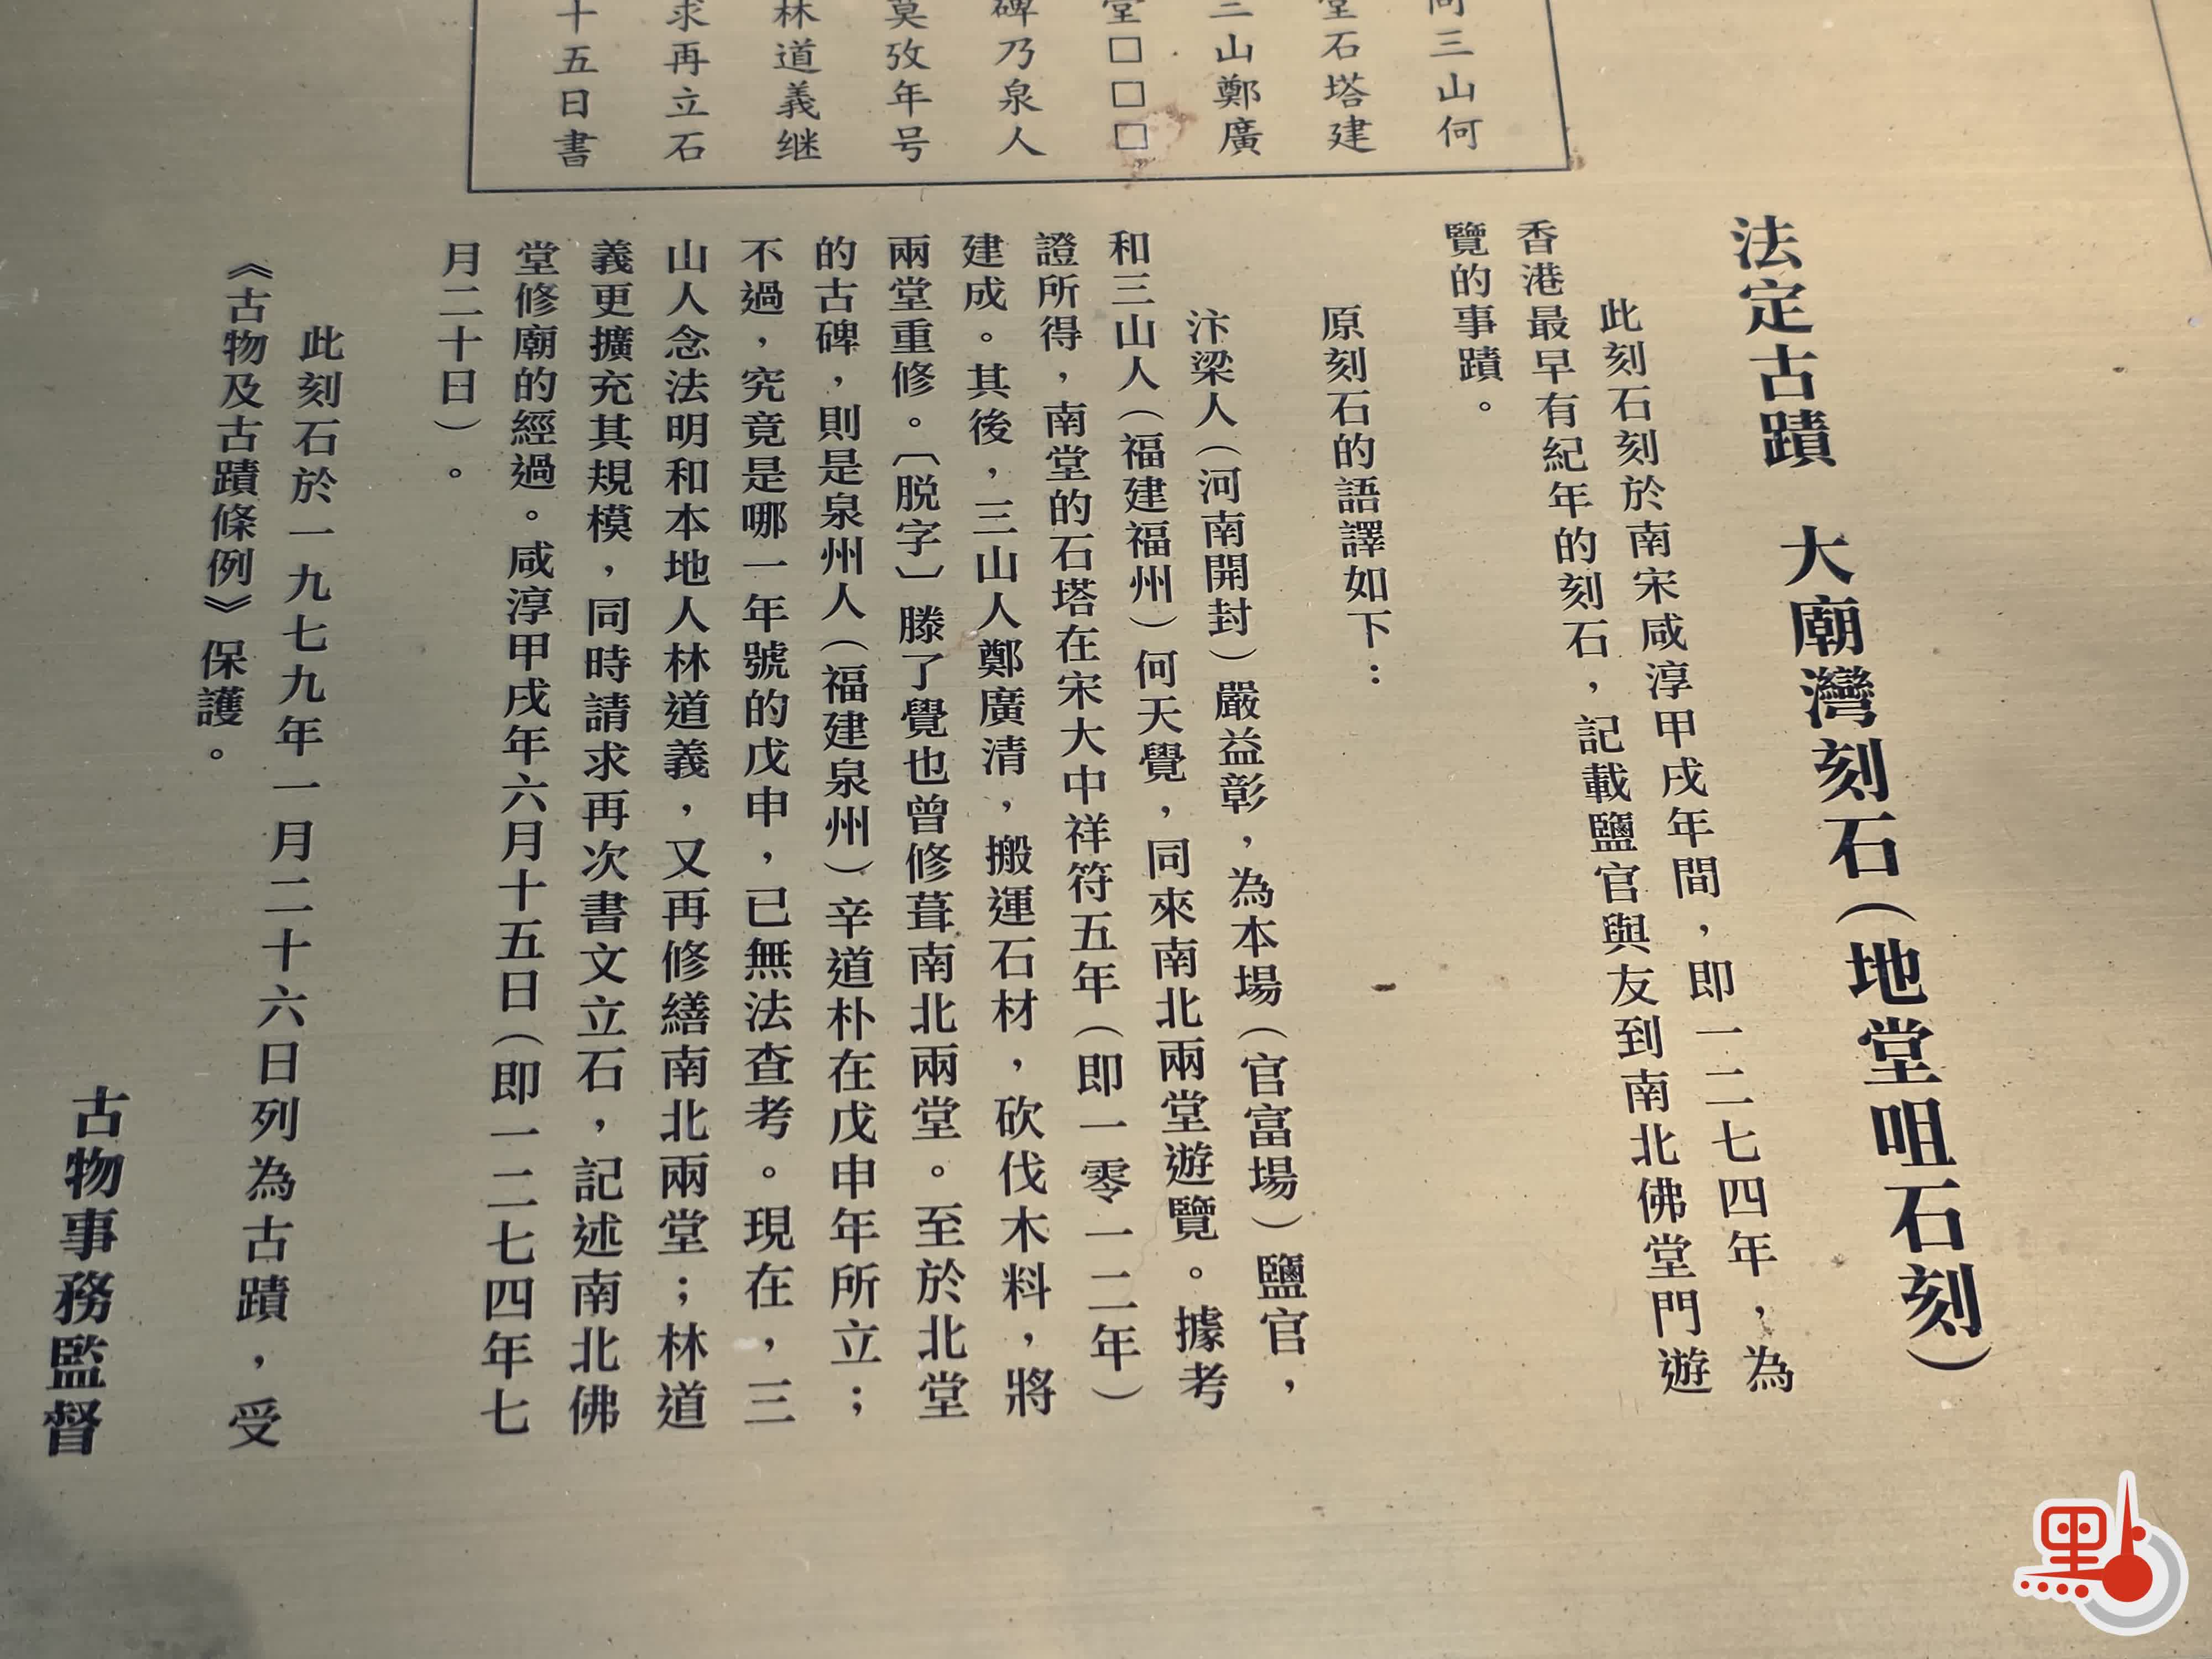 法定古蹟　大廟灣刻石（地堂咀石刻）
此刻石刻於南宋咸淳甲戌年間，即一二七四年，為
香港最早有紀年的刻石，記載鹽官與友到南北佛堂門遊
覽的事蹟。
原刻石的語譯如下：
汴梁人（河南開封）嚴益彰，為本場（官富場）鹽官，
和三山人（福建福州）何天覺，同來南北兩堂遊覽。據考
證所得，南堂的石塔在宋大中祥符五年（即一零一二年）
建成。其後，三山人鄭廣清，搬運石材，砍伐木料，將
兩堂重修。〔脱字〕滕了覺也曾修葺南北兩堂。至於北堂
的古碑，則是泉州人（福建泉州）辛道朴在戊申年所立；
不過，究竟是哪一年號的戊申，已無法查考。現在，三
山人念法明和本地人林道義，又再修繕南北兩堂；林道
義更擴充其規模，同時請求再次書文立石，記述南北佛
堂修廟的經過。咸淳甲戌年六月十五日（即一二七四年七
月二十日）。
此刻石於一九七九年一月二十六日列為古蹟，受
《古物及古蹟條例》保護。
古物事務監督
同三山何
堂石塔建
三山鄭廣
堂□□□
碑乃泉人
莫攷年号
林道義继
求再立石
十五日書
點